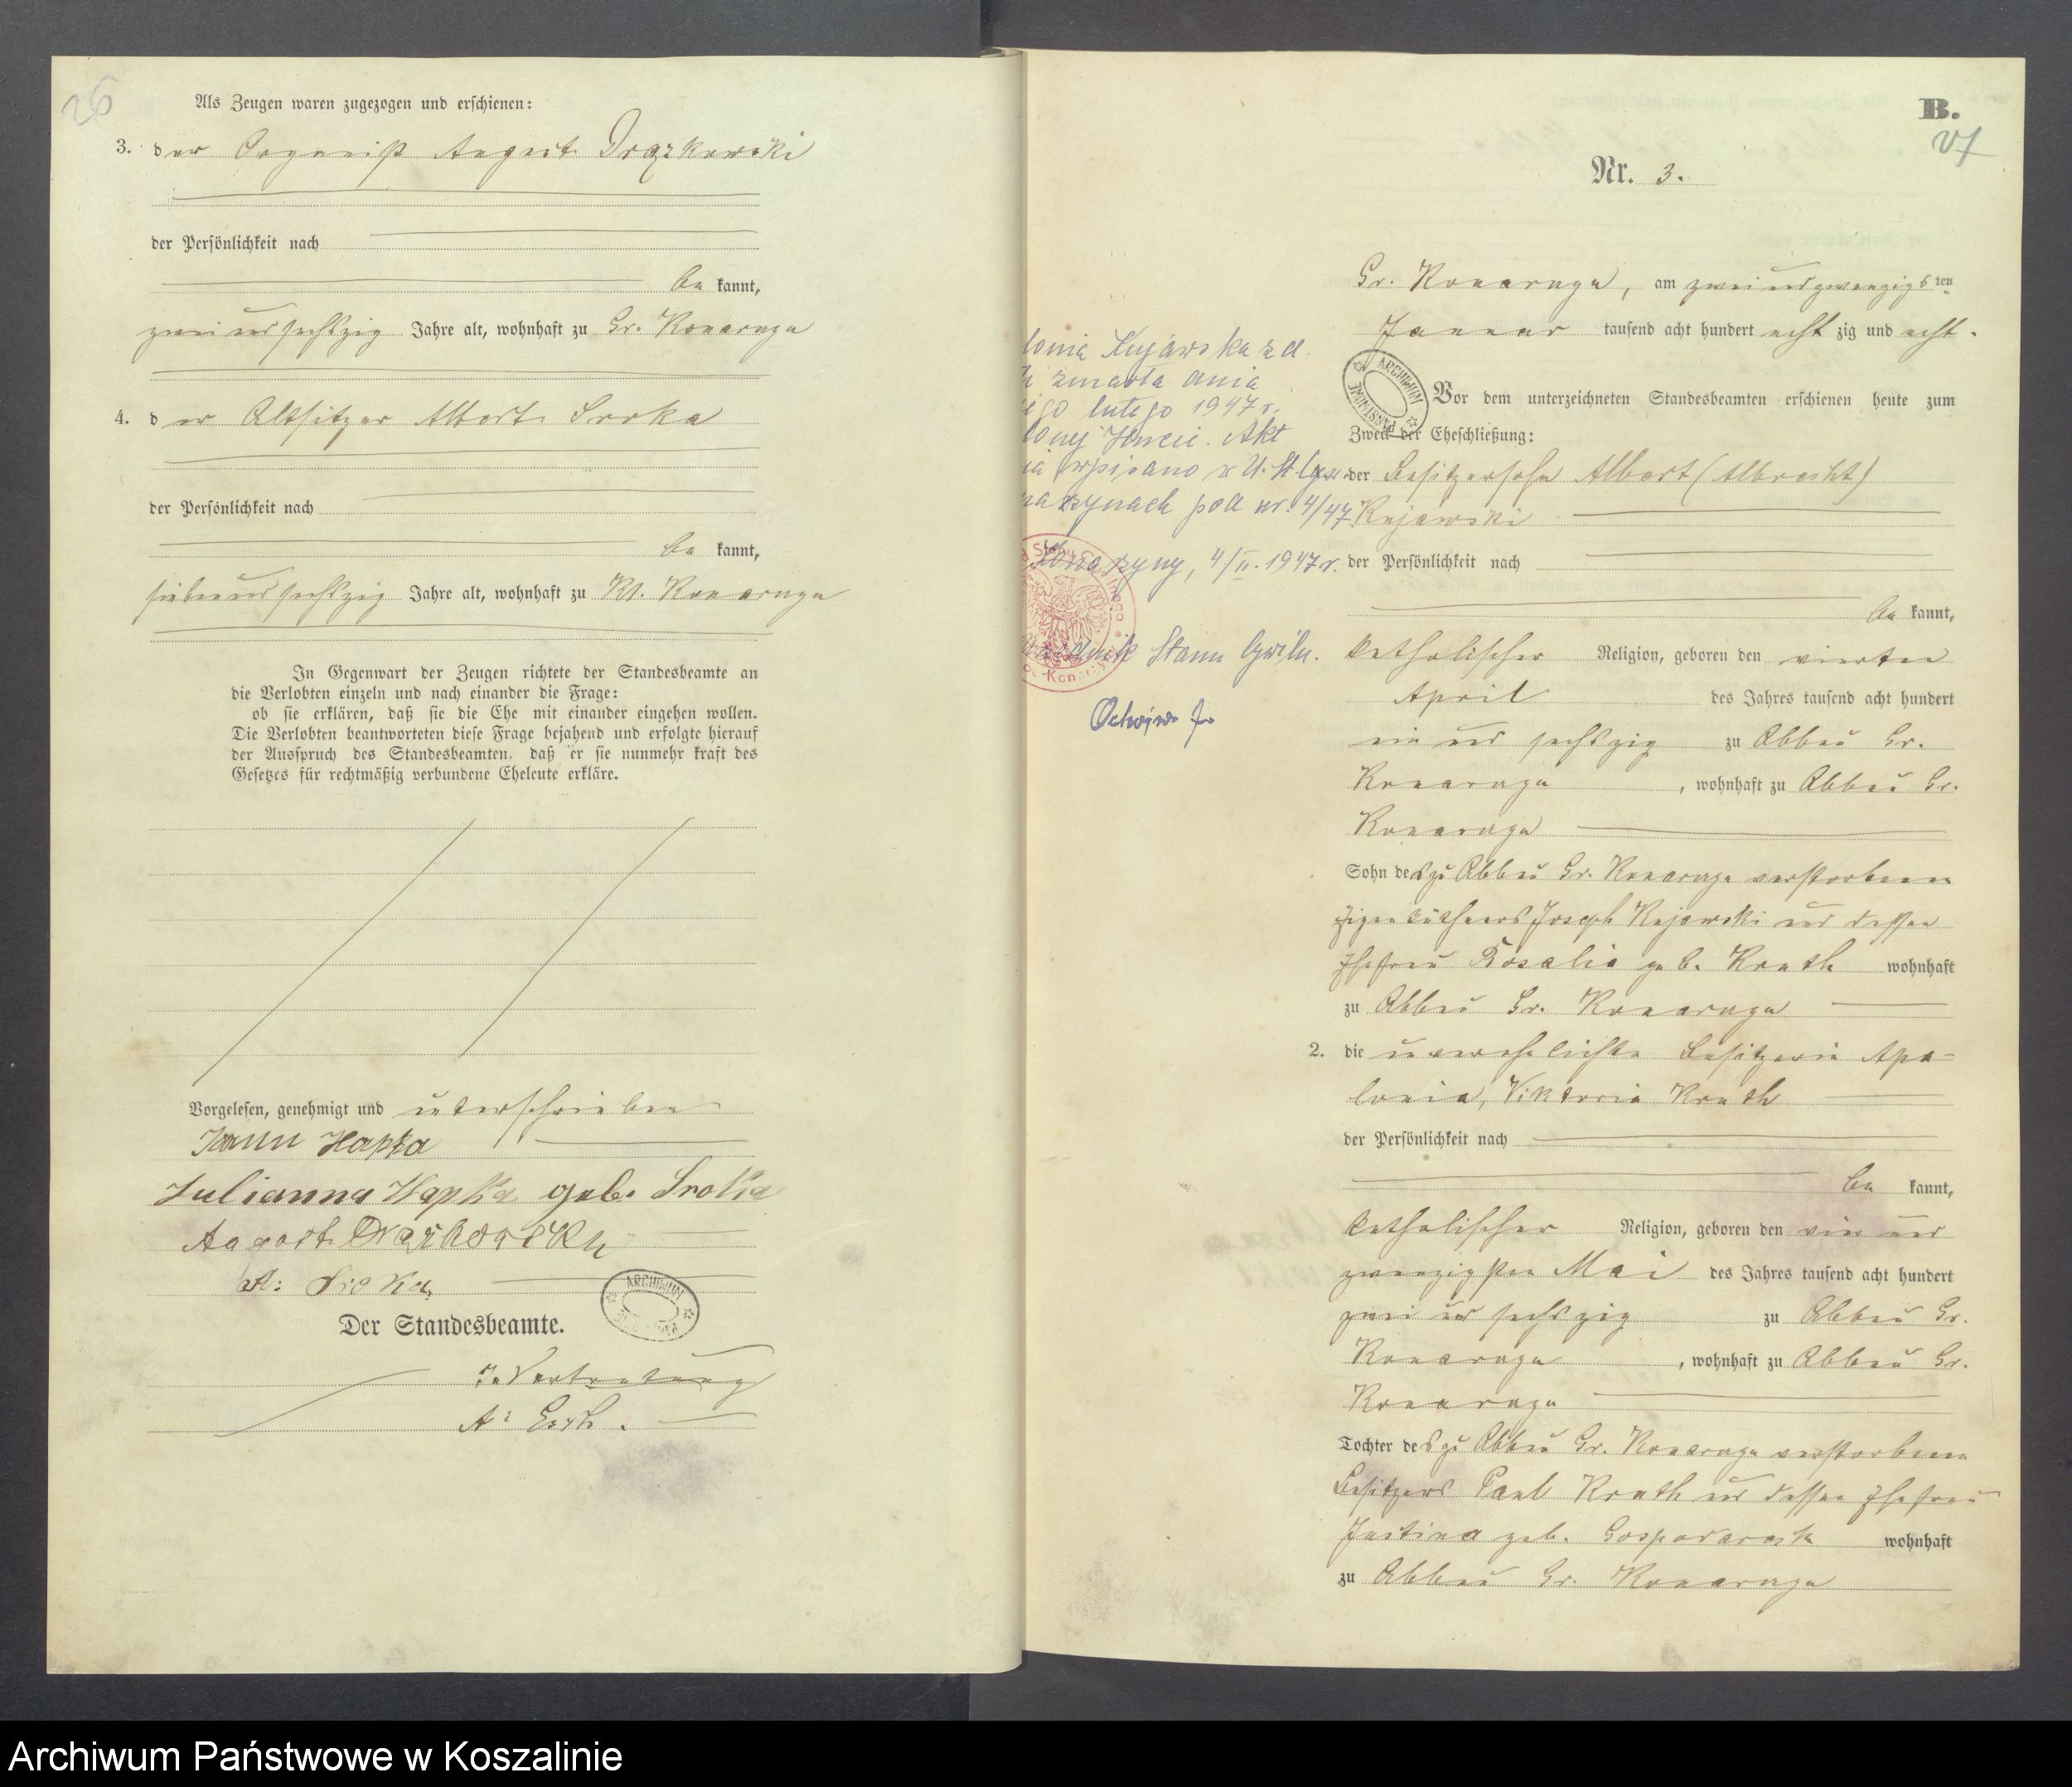 26
Als Zeugen waren zugezogen und erschienen:
3. der Organist August Drązkowski
der Persönlichkeit nach
be kannt,
zwei und sechszig Jahre alt, wohnhaft zu Gr. Konarzyn
4. der Altsitzer Albert Sroka
der Persönlichkeit nach
be kannt,
siebenundsechszig Jahre alt, wohnhaft zu Kl. Konarzyn
In Gegenwart der Zeugen richtete der Standesbeamte an
die Verlobten einzeln und nach einander die Frage:
ob sie erklären, daß sie die Ehe mit einander eingehen wollen.
Die Verlobten beantworteten diese Frage bejahend und erfolgte hierauf
der Ausspruch des Standesbeamten, daß er sie nunmehr kraft des
Gesetzes für rechtmäßig verbundene Eheleute erkläre.
Vorgelesen, genehmigt und unterschrieben
Jann Hapka
Julianna Hapka geb. Sroka
August
A: Sroka
ARCHIWUM
Der Standesbeamte.
In Vertretung
A:
B.
Nr. 3.
Gr. Konarzyn, am zweiundzwanzigsten
Januar tausend acht hundert acht zig und acht.
ARCHIWUM PAŃSTWOWE
Vor dem unterzeichneten Standesbeamten erschienen heute zum
Zweck der Eheschließung:
der Besitzersohn Albert (Albrecht)
Kujawski
der Persönlichkeit nach
be kannt,
katholischer Religion, geboren den vierten
April des Jahres tausend acht hundert
ein und sechszig zu Abbau Gr.
Konarzyn, wohnhaft zu Abbau Gr.
Konarzyn
Sohn des zu Abbau Gr. Konarzyn verstorbenen
Eigenthümers Joseph Kujawski und dessen
Ehefrau Rosalia geb. Knuth wohnhaft
zu Abbau Gr. Konarzyn
2. die unverehelichte Besitzerin Apo-
lonia, Viktoria Knuth
der Persönlichkeit nach
be kannt,
katholischer Religion, geboren den vier und
zwanzigsten Mai des Jahres tausend acht hundert
zwei und sechszig zu Abbau Gr.
Konarzyn, wohnhaft zu Abbau Gr.
Konarzyn
Tochter des zu Abbau Gr. Konarzyn verstorbenen
Besitzers Paul Knuth und dessen Ehefrau
Justina geb. wohnhaft
zu Abbau Gr. Konarzyn
lonia Kujawska z d.
h zmarła dnia
ego lutego 1947 r.
Akt
wpisano w U. St. Cyw.
nazynach pod nr. 4/47
Konarzyny, 4/II. 1947 r.
Urzędnik Stanu Cywiln.
Archiwum Państwowe w Koszalinie